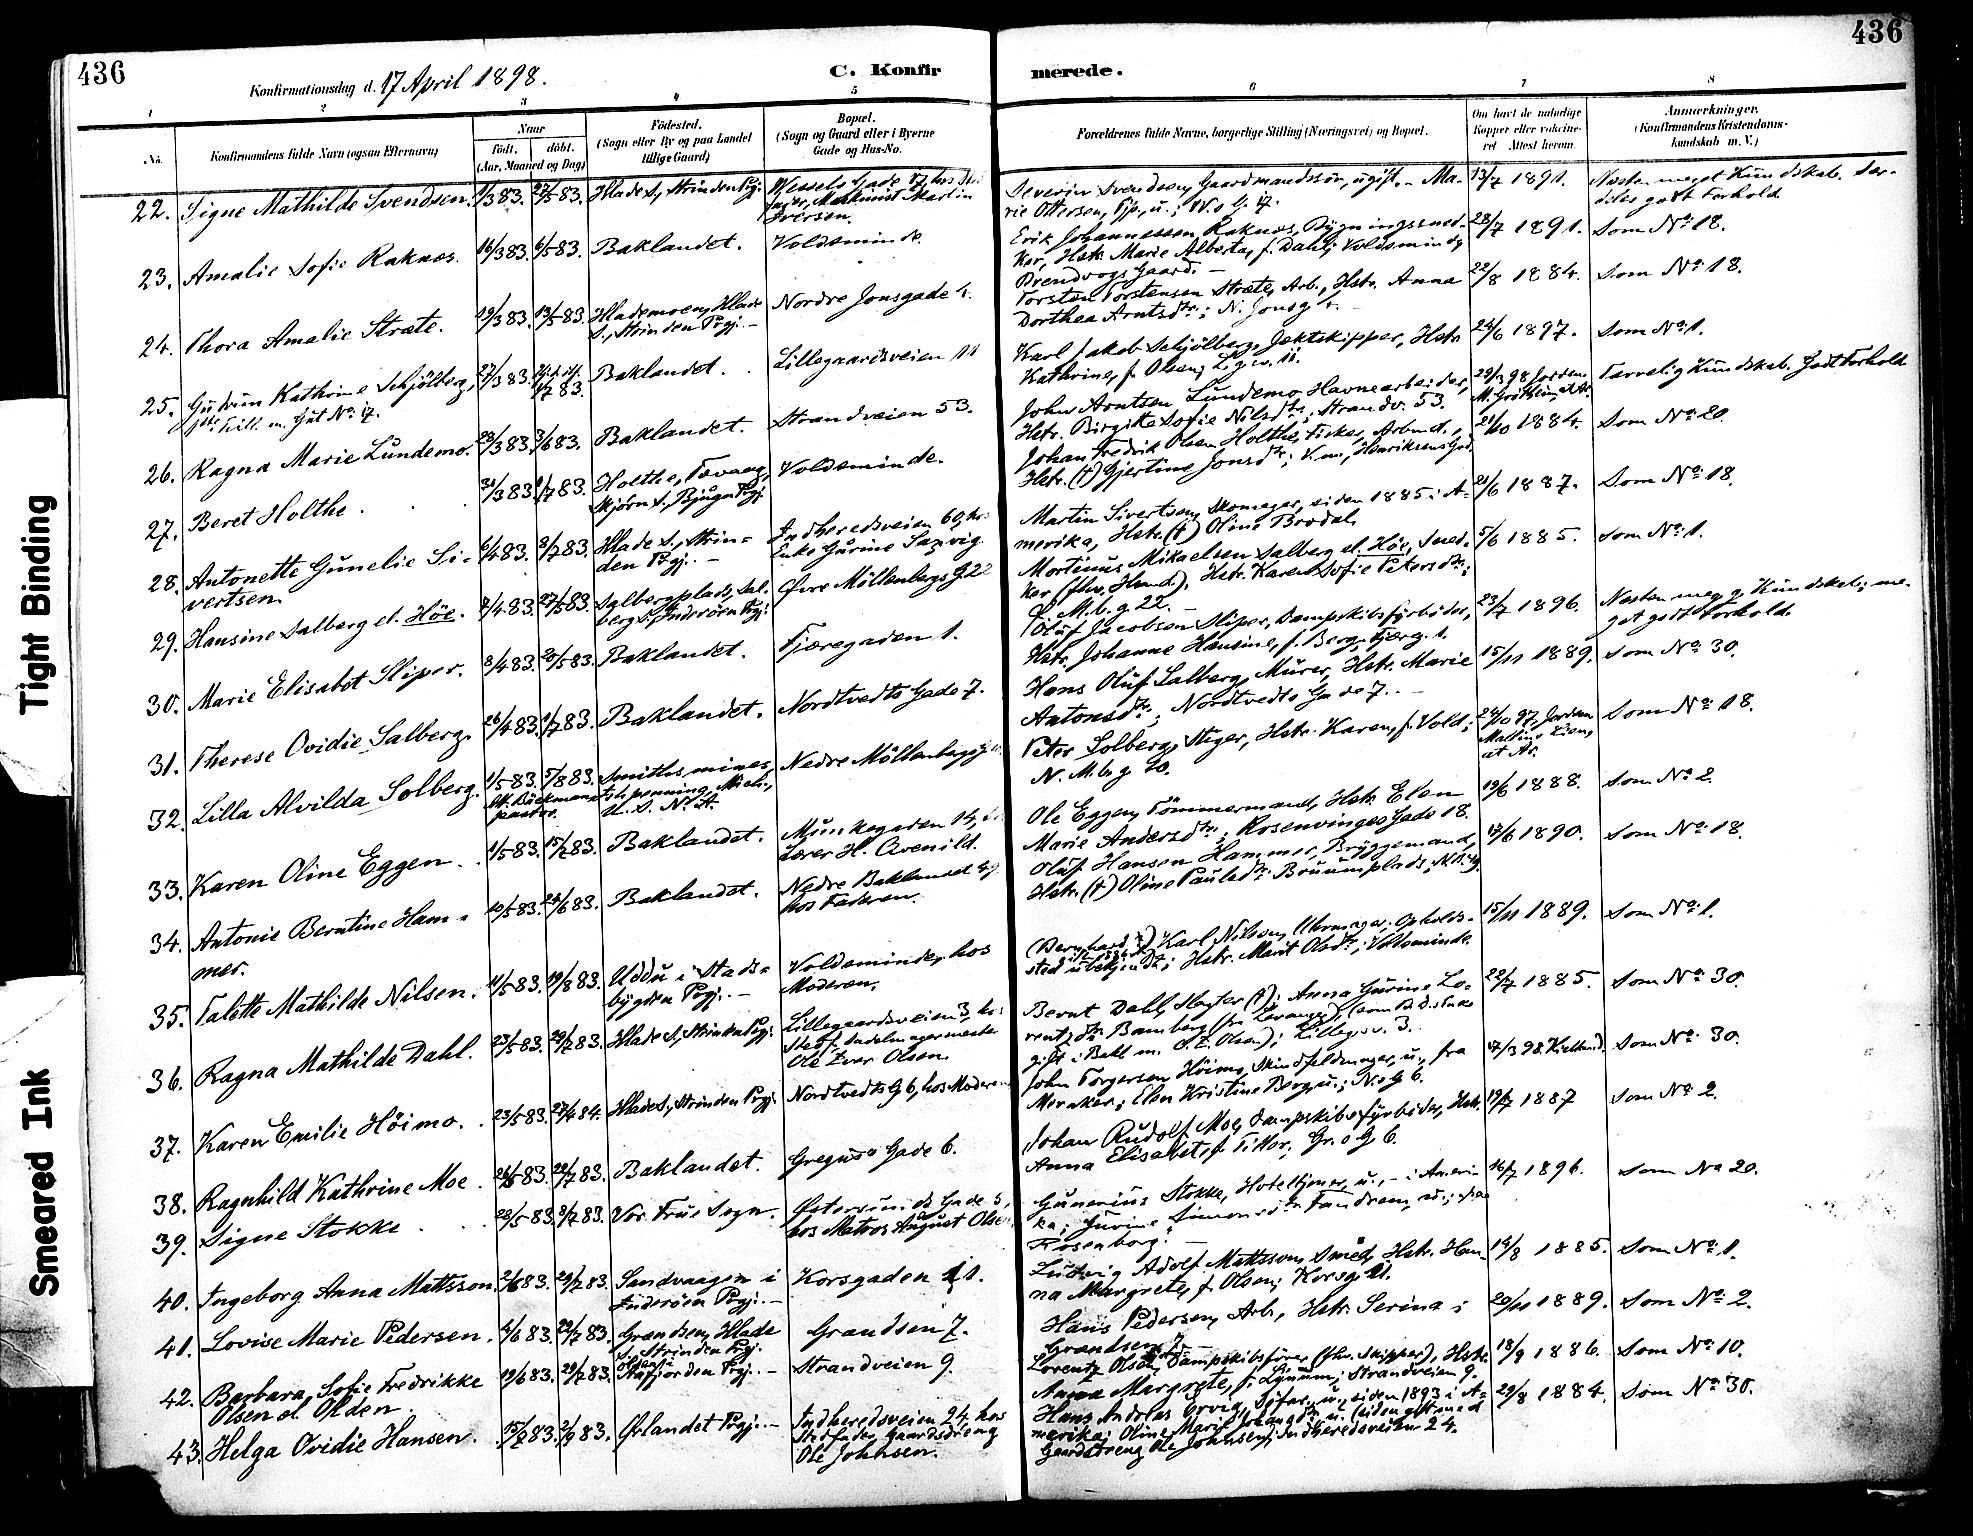 436
436
Konfirmationsdag d. 17 April 1898.
C. Konfir
merede.
1
2
3
4
5
6
7
8
No.
Konfirmandens fulde Navn (ogsaa Efternavn)
Naar
født.
døbt.
(Aar, Maaned og Dag)
Fødested.
(Sogn eller By og paa Landet
tillige Gaard)
Bopæl.
(Sogn og Gaard eller i Byerne
Gade og Hus-No.
Forældrenes fulde Navne, borgerlige Stilling (Næringsvei) og Bopæl.
Om havt de naturlige
Kopper eller vaccine-
ret Attest herom.
Anmærkninger.
(Konfirmandens Kristendoms-
kundskab m. V.)
22. Signe Mathilde Svendsen. 27/5 83. Hlade S., Strinden Pgj.
Wessels Gade 17, hos
Maskinist Martin
Iversen.
Severin Svendsen, Gaardmandssøn, ugift. - Ma-
rie Ottersen, Pije, u.;
13/7 1891.
Næsten meget Kundskab. Sær-
deles godt Forhold.
23. Amalie Sofie Raknæs. 16/3 83. 6/5 83. Baklandet. Voldsminde.
Erik Johannessen Raknæs, Bygningssned-
ker, Hstr. Marie Alberta, f. Dahl; Voldsminde,
Brendvogs Gaard. -
28/7 1891. Som No. 18.
24. Thora Amalie Stræte. 19/3 83. 13/5 83. Hlademoen, Hlade
S., Strinden Pgj. -
Nordre Jonsgade 4.
Torsten Torstensen Stræte, Arb., Hstr. Anna
Dorthea Arntsdtr.; N. Jonsg. 4.
22/8 1884. Som No. 18.
25. Gudrun Kathrine Schjölberg, 27/3 83. 1/7 83. Baklandet. Lillegaardsveien 11
Karl Jakob Schjölberg, Jektskipper, Hstr.
Kathrine, f. Olsen; Lg.v. 11.
24/6 1897. Som No. 1.
26. Ragna Marie Lundemo. 28/3 83. 3/6 83. Baklandet. Strandveien 53.
John Arntsen Lundemo, Havnearbeider,
Hstr. Birgitte Sofie Nilsdtr.; Strandv. 53.
29/3 98 Jordem.
Tarvelig Kundskab. Godt Forhold
27. Beret Holthe. 31/3 83. 1/7 83. Holthe, Tævaag,
Skjørn S., Bjugn Pgj.
Voldsminde.
Johan Fredrik Olsen Holthe, Fisker, Arbmd.,
Hstr. (†) Gjertine Jonsdtr.; V.m., Henriksens Grd.
21/10 1884. Som No. 20
28. Antonette Gunelie Si-
vertsen. 6/4 83. 8/7 83. Hlade S., Strin-
den Pgj. -
Indherredsveien 60, hos
Enke Gurine Saxvig.
Martin Sivertsen, Skomager, siden 1885 i A-
merika, Hstr. (†) Oline Brodal.
21/6 1887. Som No. 18.
29. Hansine Salberg el. Höe. 7/4 83. 27/5 83. Salbergplads, Sal-
berg S., Inderøen Pgj.
Øvre Möllenbergs G. 22
Mortinus Mikaelsen Salberg el. Höe, Sned-
ker (fhv. Hmd.), Hstr. Karen Sofie Petersdtr.;
Ø. M.b. g. 22. -
5/6 1885. Som No. 1.
30. Marie Elisabet Sliper. 8/4 83. 20/5 83. Baklandet. Fjæregaden 1.
Oluf Jacobsen Sliper, Dampskibsfyrböder,
Hstr. Johanne Hansine, f. Berg; Fjærg. 1.
23/7 1896. Næsten meg. g. Kundskab; me-
get godt Forhold.
31. Therese Ovidie Salberg. 26/4 83. 1/7 83. Baklandet. Nordtvedts Gade 7.
Hans Oluf Salberg, Murer, Hstr. Marie
Antonsdtr.; Nordtvedts Gade 7. -
15/11 1889. Som No. 30.
32. Lilla Alvilda Solberg. 1/5 83. 5/8 83. Smiths mines,
Ishpenning, Mich.,
U. S. N. A.
Nedre Möllenbergsg.
Peter Solberg, Stiger, Hstr. Karen, f. Vold;
N. M.b. g. 70.
24/10 97, Jordem.
Som No. 18.
33. Karen Oline Eggen. 1/5 83. 15/7 83. Baklandet. Munkegaden 14,
Lærer H. Qvenild.
Ole Eggen, Tömmermand, Hstr. Elen
Marie Andersdtr.; Rosenvinges Gade 18.
19/6 1888. Som No. 2.
34. Antonie Berntine Ham-
mer. 10/5 83. 24/6 83. Baklandet. Nedre Baklandet
hos Faderen.
Oluf Hansen Hammer, Bryggemand,
Hstr. (†) Oline Paulsdtr.
17/6 1890. Som No. 18.
35. Talette Mathilde Nilsen. 11/5 83. 19/8 83. Uddu i Stads-
bygden Pgj. -
Voldsminde, hos
Moderen.
(Bernhard) Karl Nilsen, Uhrmager, Opholds-
sted ubekjendt; Hstr. Marit Olsdtr.; Voldsminde.
15/11 1889. Som No. 1.
36. Ragna Mathilde Dahl. 23/5 83. 29/7 83. Hlade S., Strinden Pgj.
Lillegaardsveien 3, hos
Stedf. Sadelmagermester
Ole Iver Olsen.
Bernt Dahl, Slagter (†); Anna Gurine Lo-
rentzdtr. Bamberg (fra Levanger),
gift i Bakl. m. O. I. Olsen); Lillegv. 3.
22/7 1885. Som No. 30.
37. Karen Emilie Höimo. 23/5 83. 27/4 84. Hlade S., Strinden Pgj. Nordtvedts G. 6, hos Moderen
John Torgersen Höimo, Skindfeldmager, u., fra
Meraker; Elen Kristine Berg, u.; N.s G. 6.
17/3 98. Kielland. Som No. 30.
38. Ragnhild Kathrine Moe. 26/5 83. 29/7 83. Baklandet. Gregus' Gade 6.
Johan Rudolf Moe, Dampskibsfyrböder, Hstr.
Anna Elisabet, f. Fiktor; Gr. s G. 6.
19/7 1887 Som No. 2.
39. Signe Stokke. 28/5 83. 8/7 83. Vor Frue Sogn. Østersunds Gade 5,
hos Matros August Olsen
Gunerius Stokke, Hoteltjener, u., - i Ameri-
ka; Gurine Simonsdtr. Fandrem, u.;
Rosenborg. -
16/7 1896. Som No. 20.
40. Ingeborg Anna Mattsson. 2/6 83. 29/7 83. Sandvaagen i
Inderöen Pgj. -
Korsgaden 11.
Ludvig Adolf Mattsson, Smed, Hstr. Han-
na Margrete, f. Olsen; Korsg. 11.
14/8 1885. Som No. 1.
41. Lovise Marie Pedersen. 4/6 83. 29/7 83. Grandsen, Hlade
S., Strinden Pgj.
Grandsen 7.
Hans Pedersen, Arb., Hstr. Serina;
Grandsen 7. -
20/11 1889. Som No. 2.
42. Barbara Sofie Fredrikke
Olsen el. Olden. 19/6 83. 29/7 83. Olden i
Stafjorden Pgj. -
Strandveien 9.
Lorentz Olsen, Dampskibsförer (fhv. Skipper), Hstr.
Anna Margrete, f. Lymum; Strandveien 9.
18/9 1886. Som No. 10.
43. Helga Ovidie Hansen. 15/7 83. 2/9 83. Ørlandet Pgj. -
Indherredsveien 24, hos
Stedfader, Gaardsdreng
Ole Johnsen.
Hans Andreas Ervig, Söfar., u., siden 1893 i A-
merika; Oline Marie Johansdtr., u. (siden gift med
Gaardsdreng Ole Johnsen); Indherredsveien 24.
29/8 1884. Som No. 30.
Tight Binding
Smeared Ink